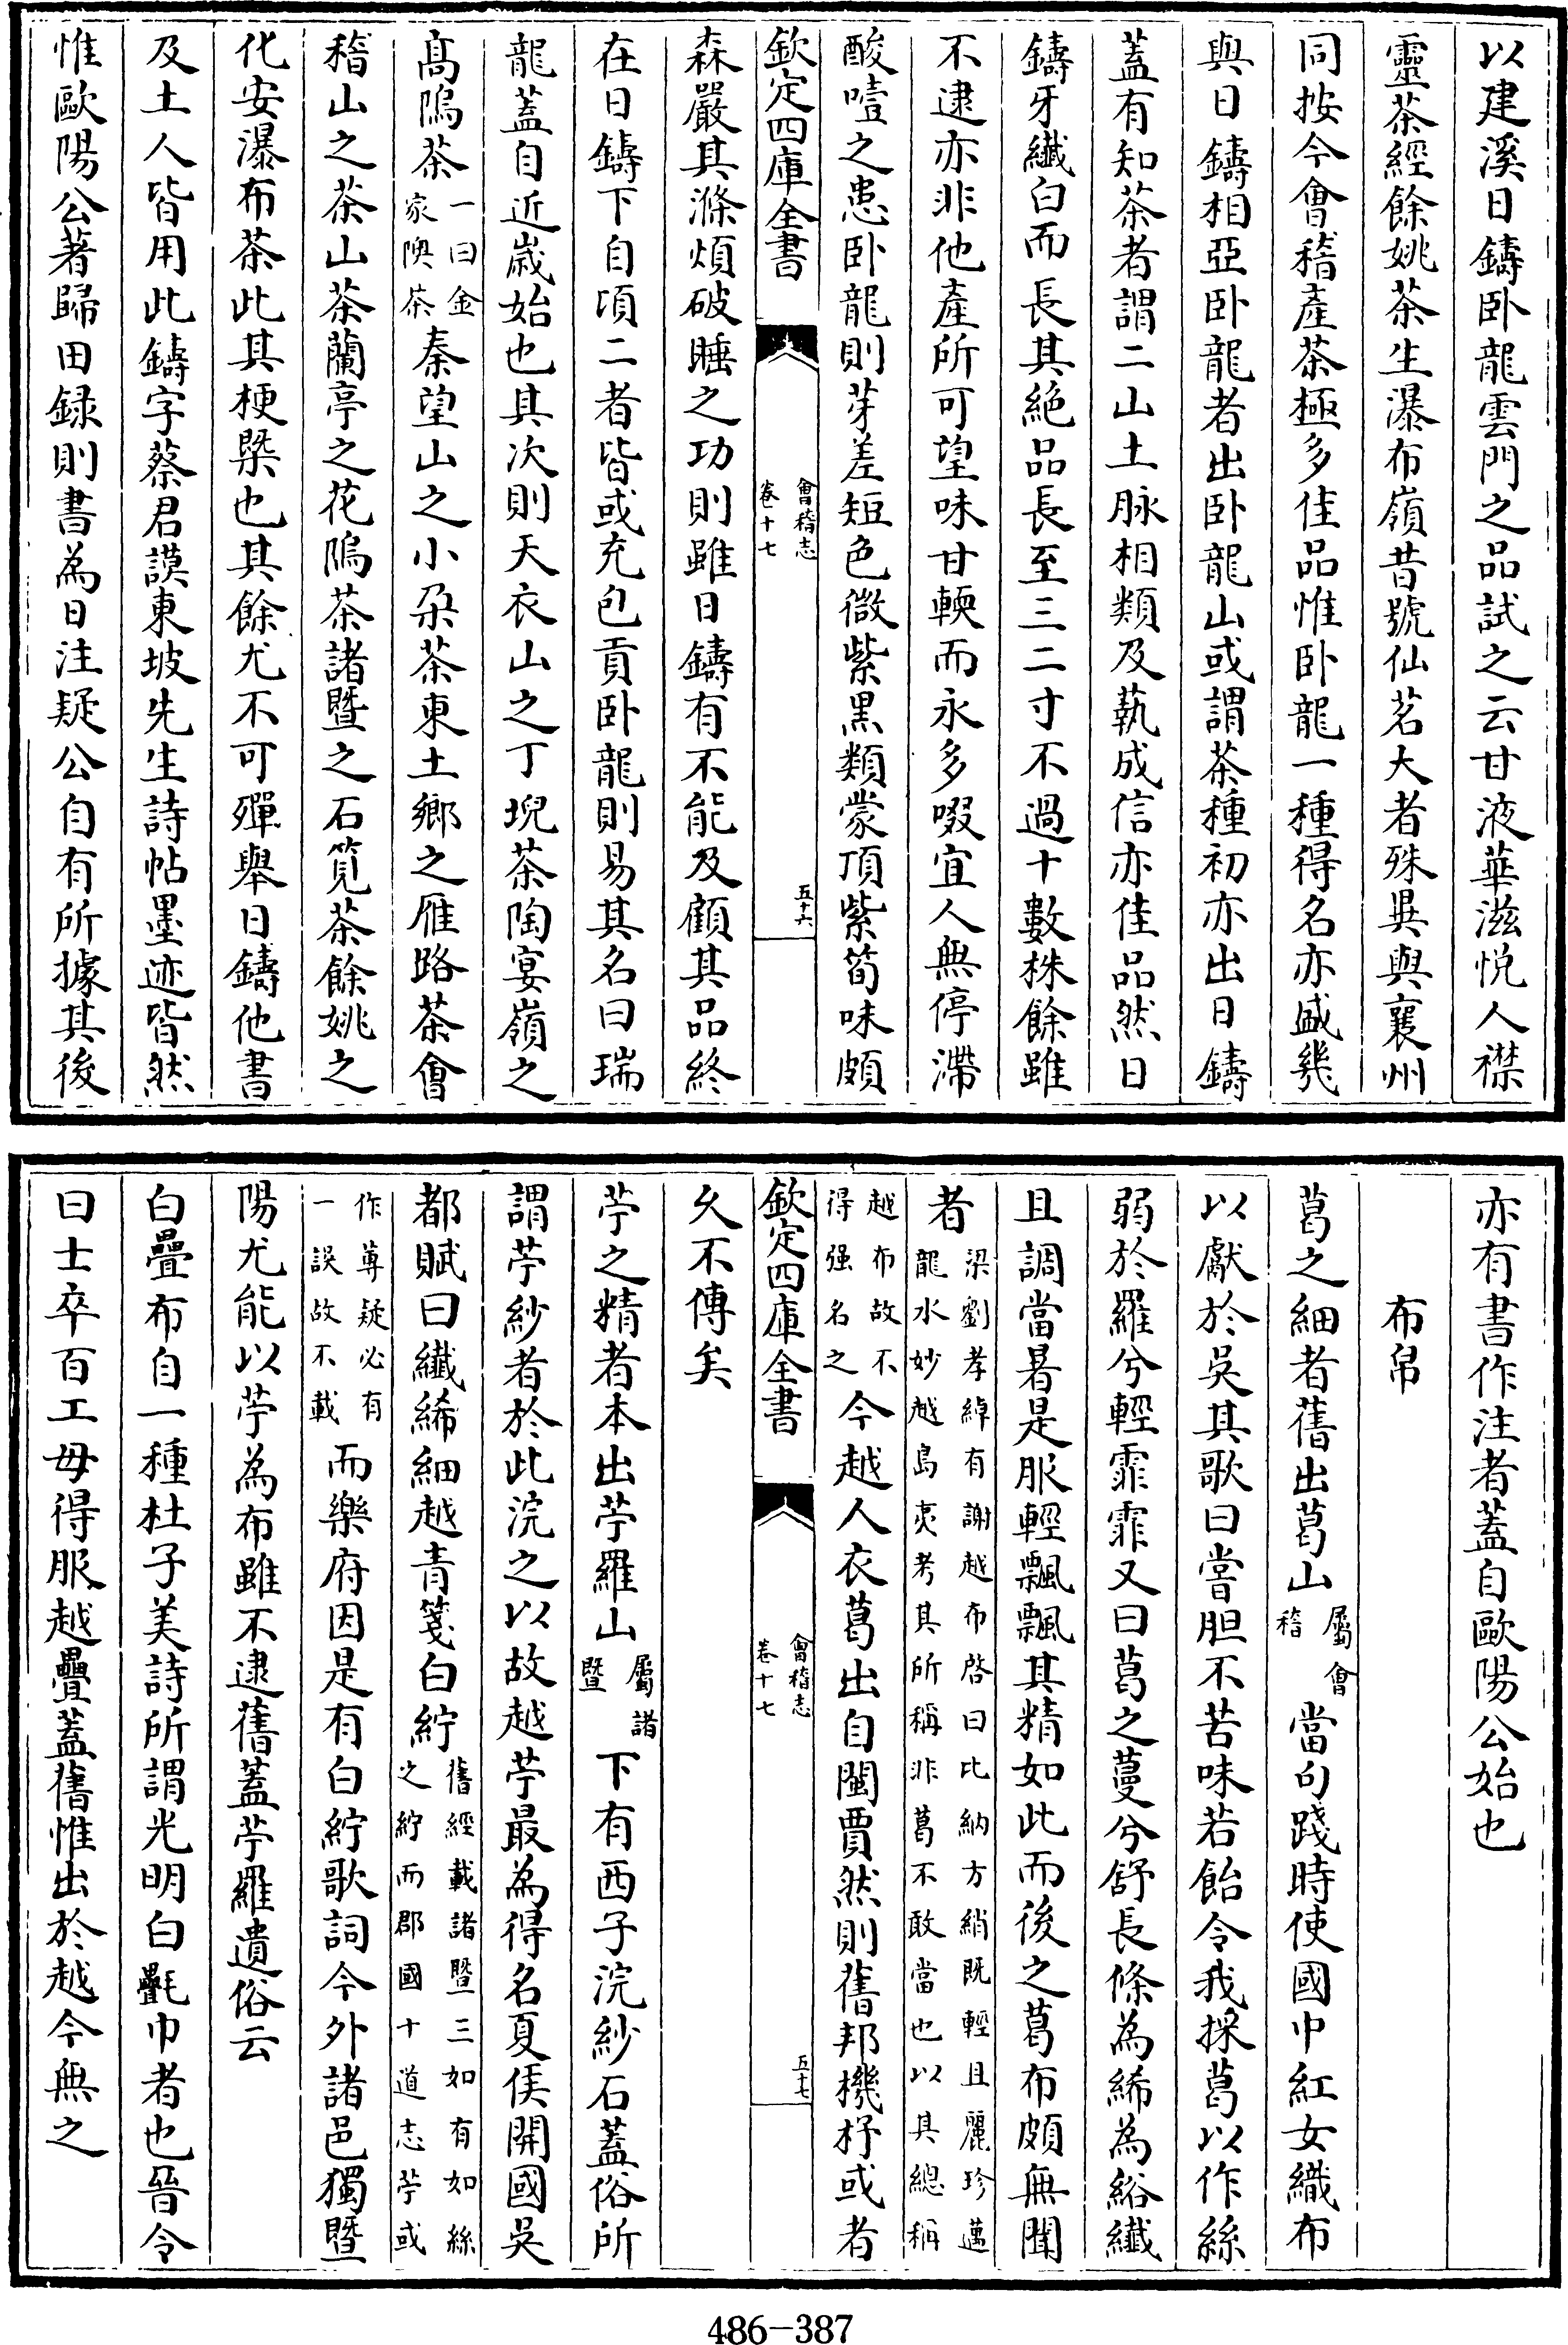 以建溪日鑄卧龍雲門之品試之云甘液華滋悦人襟
靈茶經餘姚茶生瀑布嶺昔號仙茗大者殊異與襄州
同按今會稽產茶極多佳品惟卧龍一種得名亦盛幾
與日鑄相亞卧龍者出卧龍山或謂茶種初亦出日鑄
蓋有知茶者謂二山土脉相類及蓺成信亦佳品然日
鑄牙纎白而長其絶品長至三二寸不過十數株餘雖
不逮亦非他產所可望味甘軟而永多啜宜人無停滯
酸噎之患卧龍則芽差短色微紫黑類蒙頂紫筍味頗
欽定四庫全書
會稽志
卷十七
五十六
森嚴其滌煩破睡之功則雖日鑄有不能及顧其品終
在日鑄下自頃二者皆或充包貢卧龍則易其名曰瑞
龍蓋自近歲始也其次則天衣山之丁堄茶陶宴嶺之
髙隖茶一曰金家㬉茶秦望山之小朶茶東土鄉之雁路茶會
稽山之茶山茶蘭亭之花隖茶諸暨之石筧茶餘姚之
化安瀑布茶此其梗槩也其餘尤不可殫舉日鑄他書
及土人皆用此鑄字蔡君謨東坡先生詩帖墨迹皆然
惟歐陽公著歸田録則書為日注疑公自有所據其後
亦有書作注者蓋自歐陽公始也
布帛
葛之細者舊出葛山屬會稽當句踐時使國中紅女織布
以獻於吳其歌曰嘗胆不苦味若飴令我採葛以作絲
弱於羅兮輕霏霏又曰葛之蔓兮舒長條為絺為綌纎
且調當暑是服輕飄飄其精如此而後之葛布頗無聞
者梁劉孝綽有謝越布啓曰比納方綃既輕且麗珍邁龍水妙越島夷考其所稱非葛不敢當也以其總稱
越布故不得强名之今越人衣葛出自閩賈然則舊邦機杼或者
欽定四庫全書
會稽志
卷十七
五十七
久不傳矣
苧之精者本出苧羅山屬諸暨下有西子浣紗石蓋俗所
謂苧紗者於此浣之以故越苧最為得名夏侯開國吳
都賦曰纎絺細越青箋白紵舊經載諸暨三如有如絲之紵而郡國十道志苧或
作蓴疑必有一誤故不載而樂府因是有白紵歌詞今外諸邑獨暨
陽尤能以苧為布雖不逮舊蓋苧羅遺俗云
白疊布自一種杜子美詩所謂光明白㲲巾者也晉令
曰士卒百工毋得服越疊蓋舊惟出於越今無之
486-387